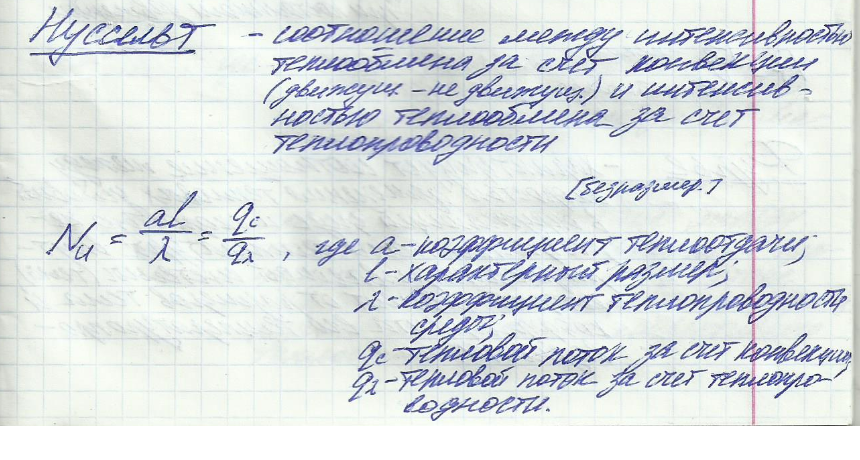 Нуссельт - соотношение между интенсивностью
теплообмена за счет конвекции
(движущ. - не движущ.) и интенсив-
ностью теплообмена за счет
теплопроводности
[безразмер.]
Nu = al/λ = qc/qλ, где a - коэффициент теплоотдачи;
l - характерный размер;
λ - коэффициент теплопроводности
среды;
qc - тепловой поток за счет конвекции;
qλ - тепловой поток за счет теплопро-
водности.